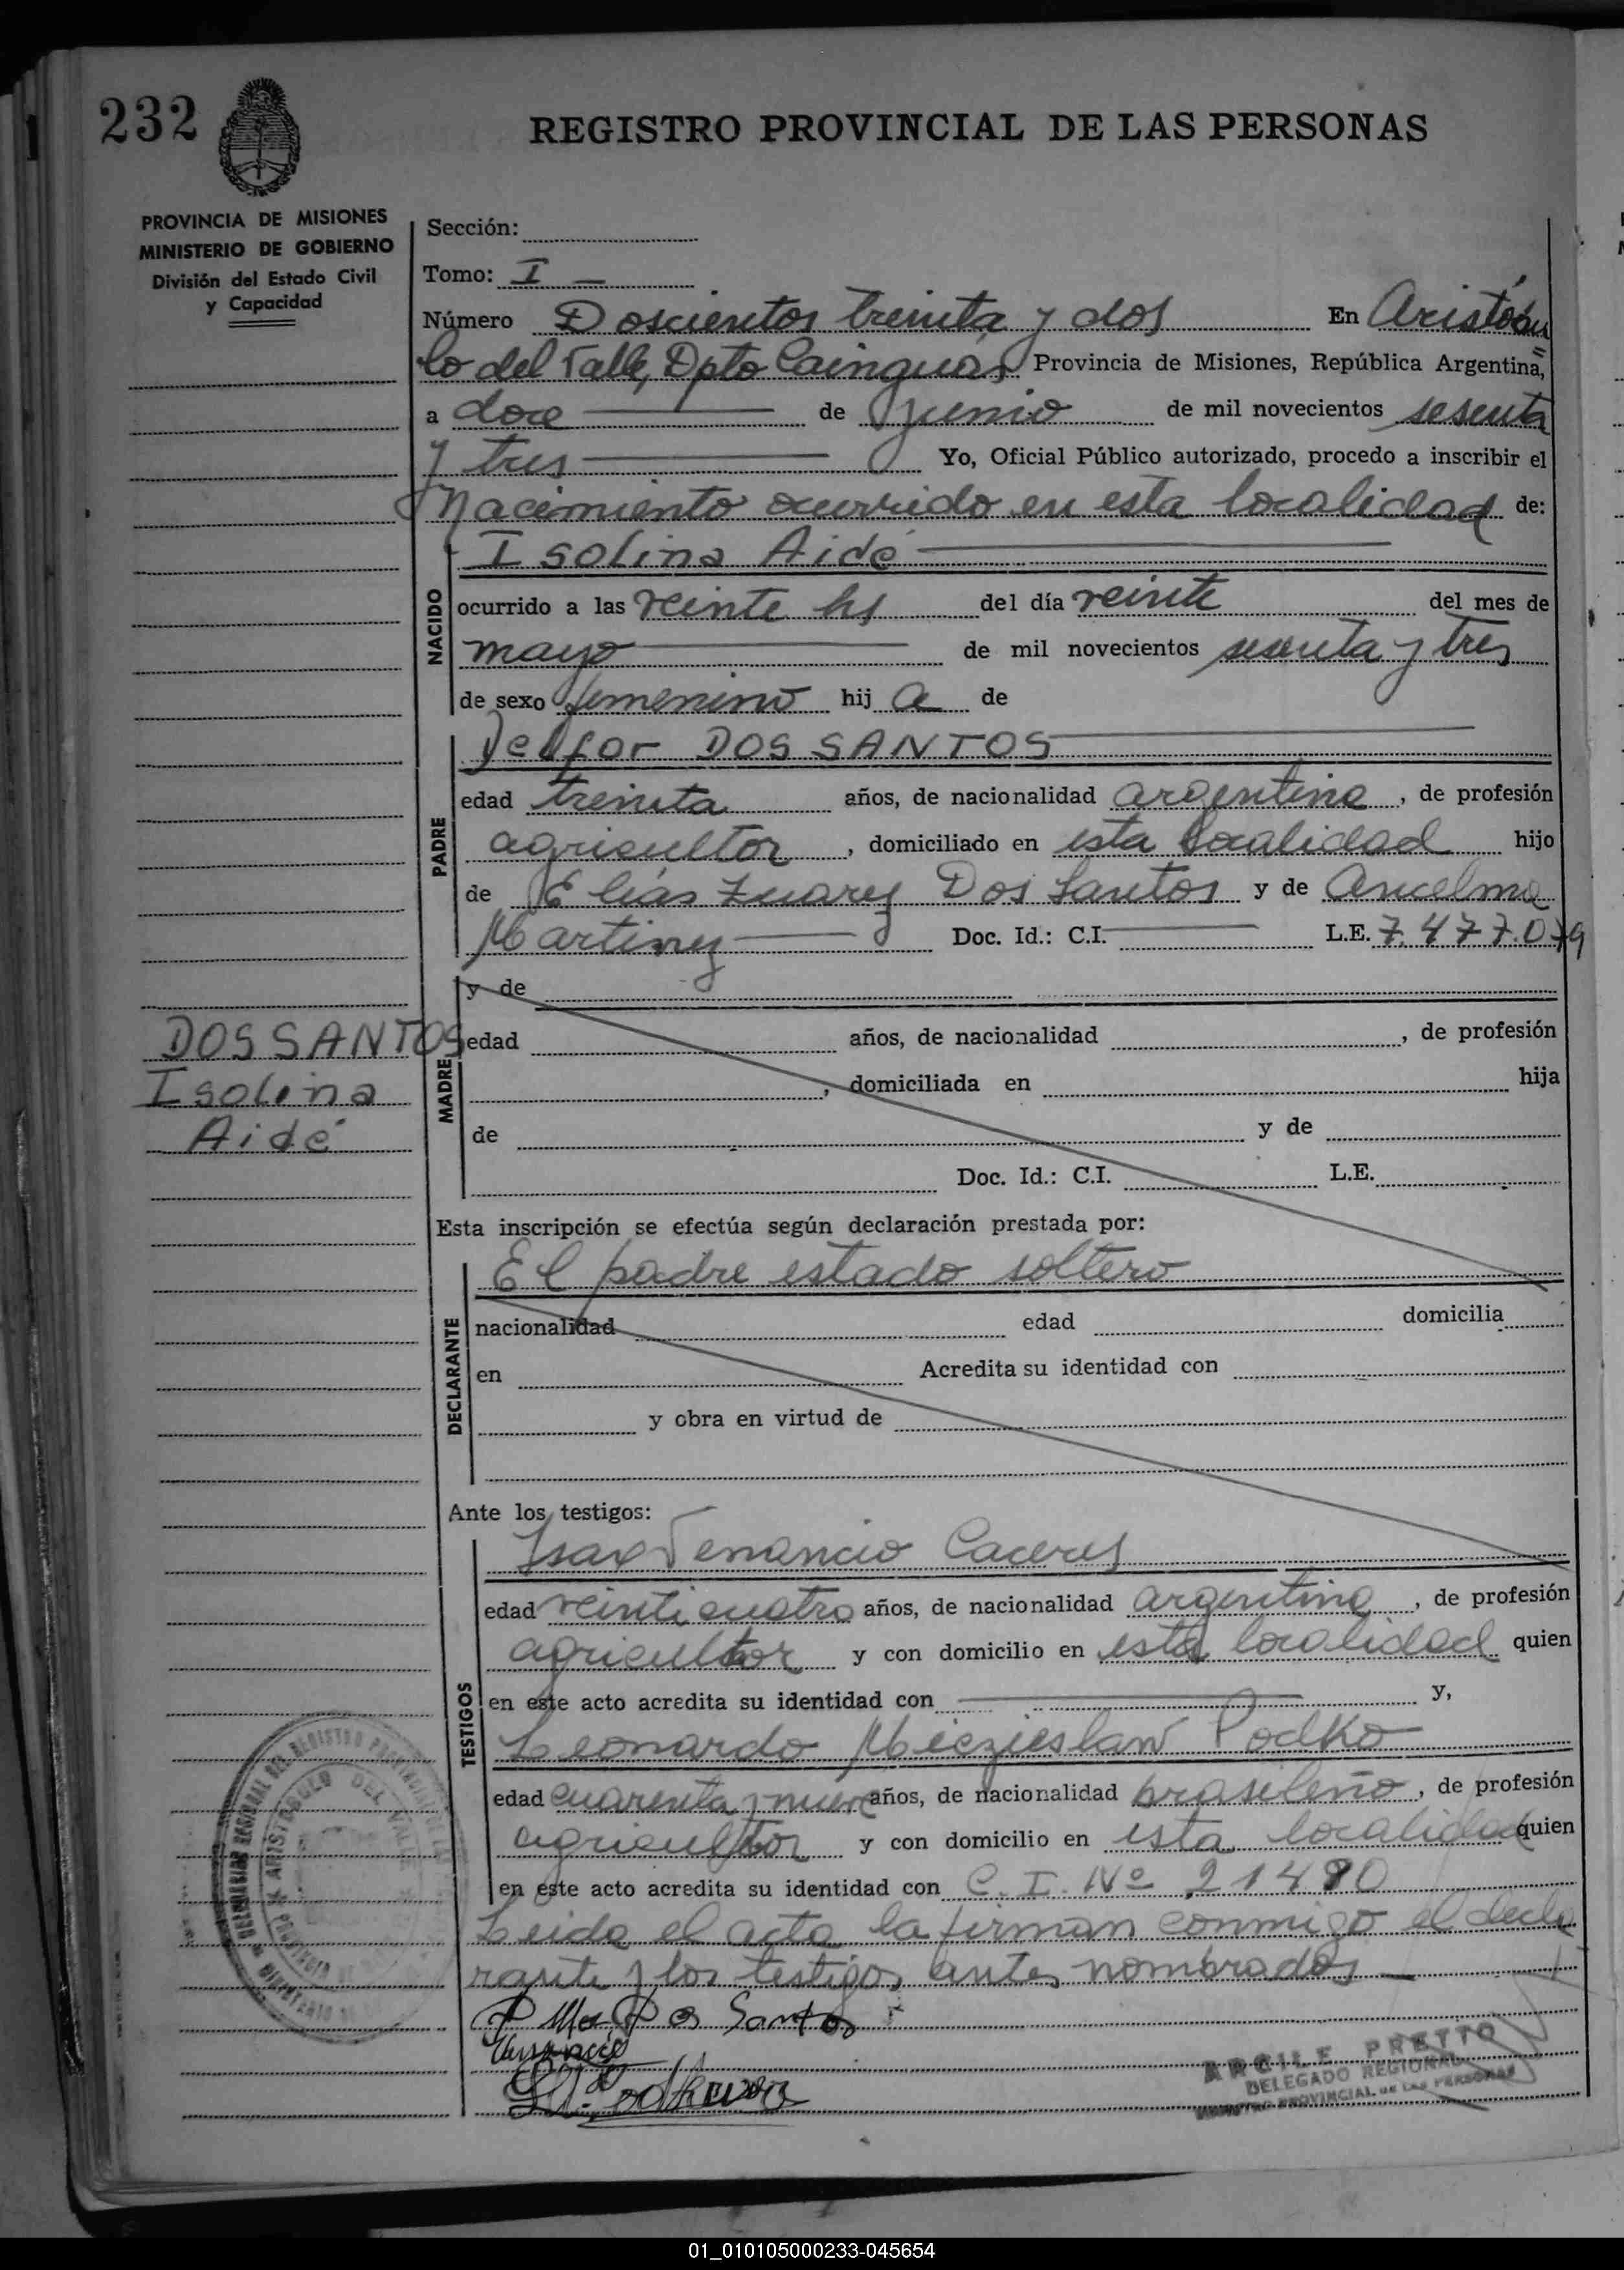 232
REGISTRO PROVINCIAL DE LAS PERSONAS
PROVINCIA DE MISIONES
MINISTERIO DE GOBIERNO
División del Estado Civil
y Capacidad
Sección:
Tomo: I —
Número Doscientos treinta y dos En Aristóbu
lo del Valle, Dpto Cainguás Provincia de Misiones, República Argentina,
a doce de junio de mil novecientos sesenta
y tres Yo, Oficial Público autorizado, procedo a inscribir el
Nacimiento ocurrido en esta localidad de:
Isolina Aidé
NACIDO
ocurrido a las veinte hs del día veinte del mes de
mayo de mil novecientos sesenta y tres
de sexo femenino hij a de
Delfor DOS SANTOS
PADRE
edad treinta años, de nacionalidad argentina, de profesión
agricultor, domiciliado en esta localidad hijo
de Elías Zuarez Dos Santos y de Ancelma
Martinez Doc. Id.: C.I. L.E. 7.477.079
y de
DOS SANTOS
Isolina
Aidé
MADRE
edad años, de nacionalidad , de profesión
, domiciliada en hija
de y de
Doc. Id.: C.I. L.E.
Esta inscripción se efectúa según declaración prestada por:
El padre estado soltero
DECLARANTE
nacionalidad edad domicilia
en Acredita su identidad con
y obra en virtud de
Ante los testigos:
Isax Venancio Caceres
TESTIGOS
edad veinticuatro años, de nacionalidad argentina, de profesión
agricultor y con domicilio en esta localidad quien
en este acto acredita su identidad con y,
Leonardo Mieczieslaw Podko
edad cuarenta y nueve años, de nacionalidad brasileño, de profesión
agricultor y con domicilio en esta localidad quien
en este acto acredita su identidad con C.I. Nº 21480
Leida el acta la firman conmigo el decla
rante y los testigos antes nombrados —
Dos Santos
Venancio
ARCILE PRETTO
DELEGADO REGIONAL
REGISTRO PROVINCIAL DE LAS PERSONAS
ARISTOBULO DEL VALLE
01_010105000233-045654